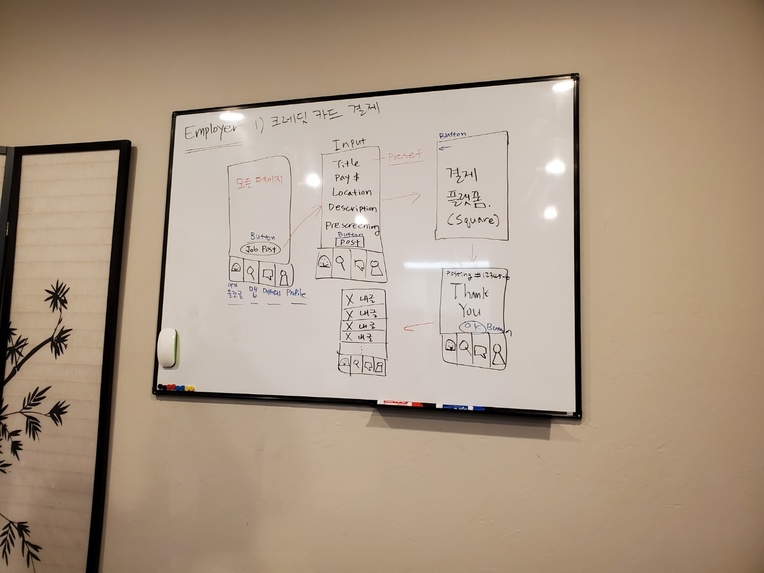 Employer 1) 크레딧 카드 결제
모든 페이지
Button
Job Post
맵
Profile
Input
Title
Preset
Pay $
Location
Description
Prescreening
Button
post
Button
결제
플랫폼.
(Square)
Posting #
Thank
You
OK Button
X 내글
X 내글
X 내글
X 내글